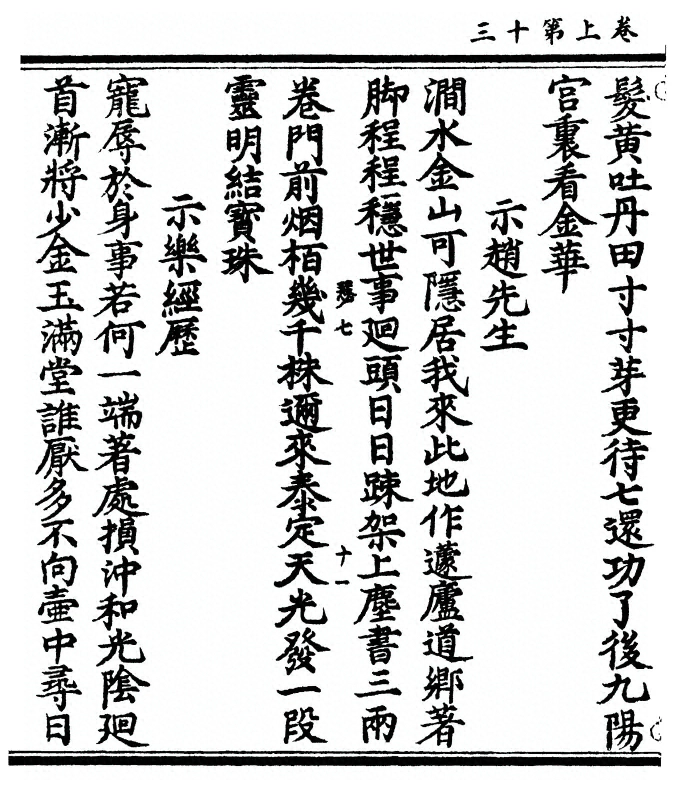 卷上第十三
髮黃吐丹田寸寸芽更待七還功了後九陽
宫裏看金華
示趙先生
澗水金山可隱居我來此地作蘧廬道鄉著
脚程程穩世事廻頭日日踈架上塵書三兩
七
十一
卷門前烟栢幾千株邇來泰定天光發一段
靈明結寳珠
示樂經歷
寵辱於身事若何一端著處損沖和光陰廻
首漸將少金玉滿堂誰厭多不向壷中尋日